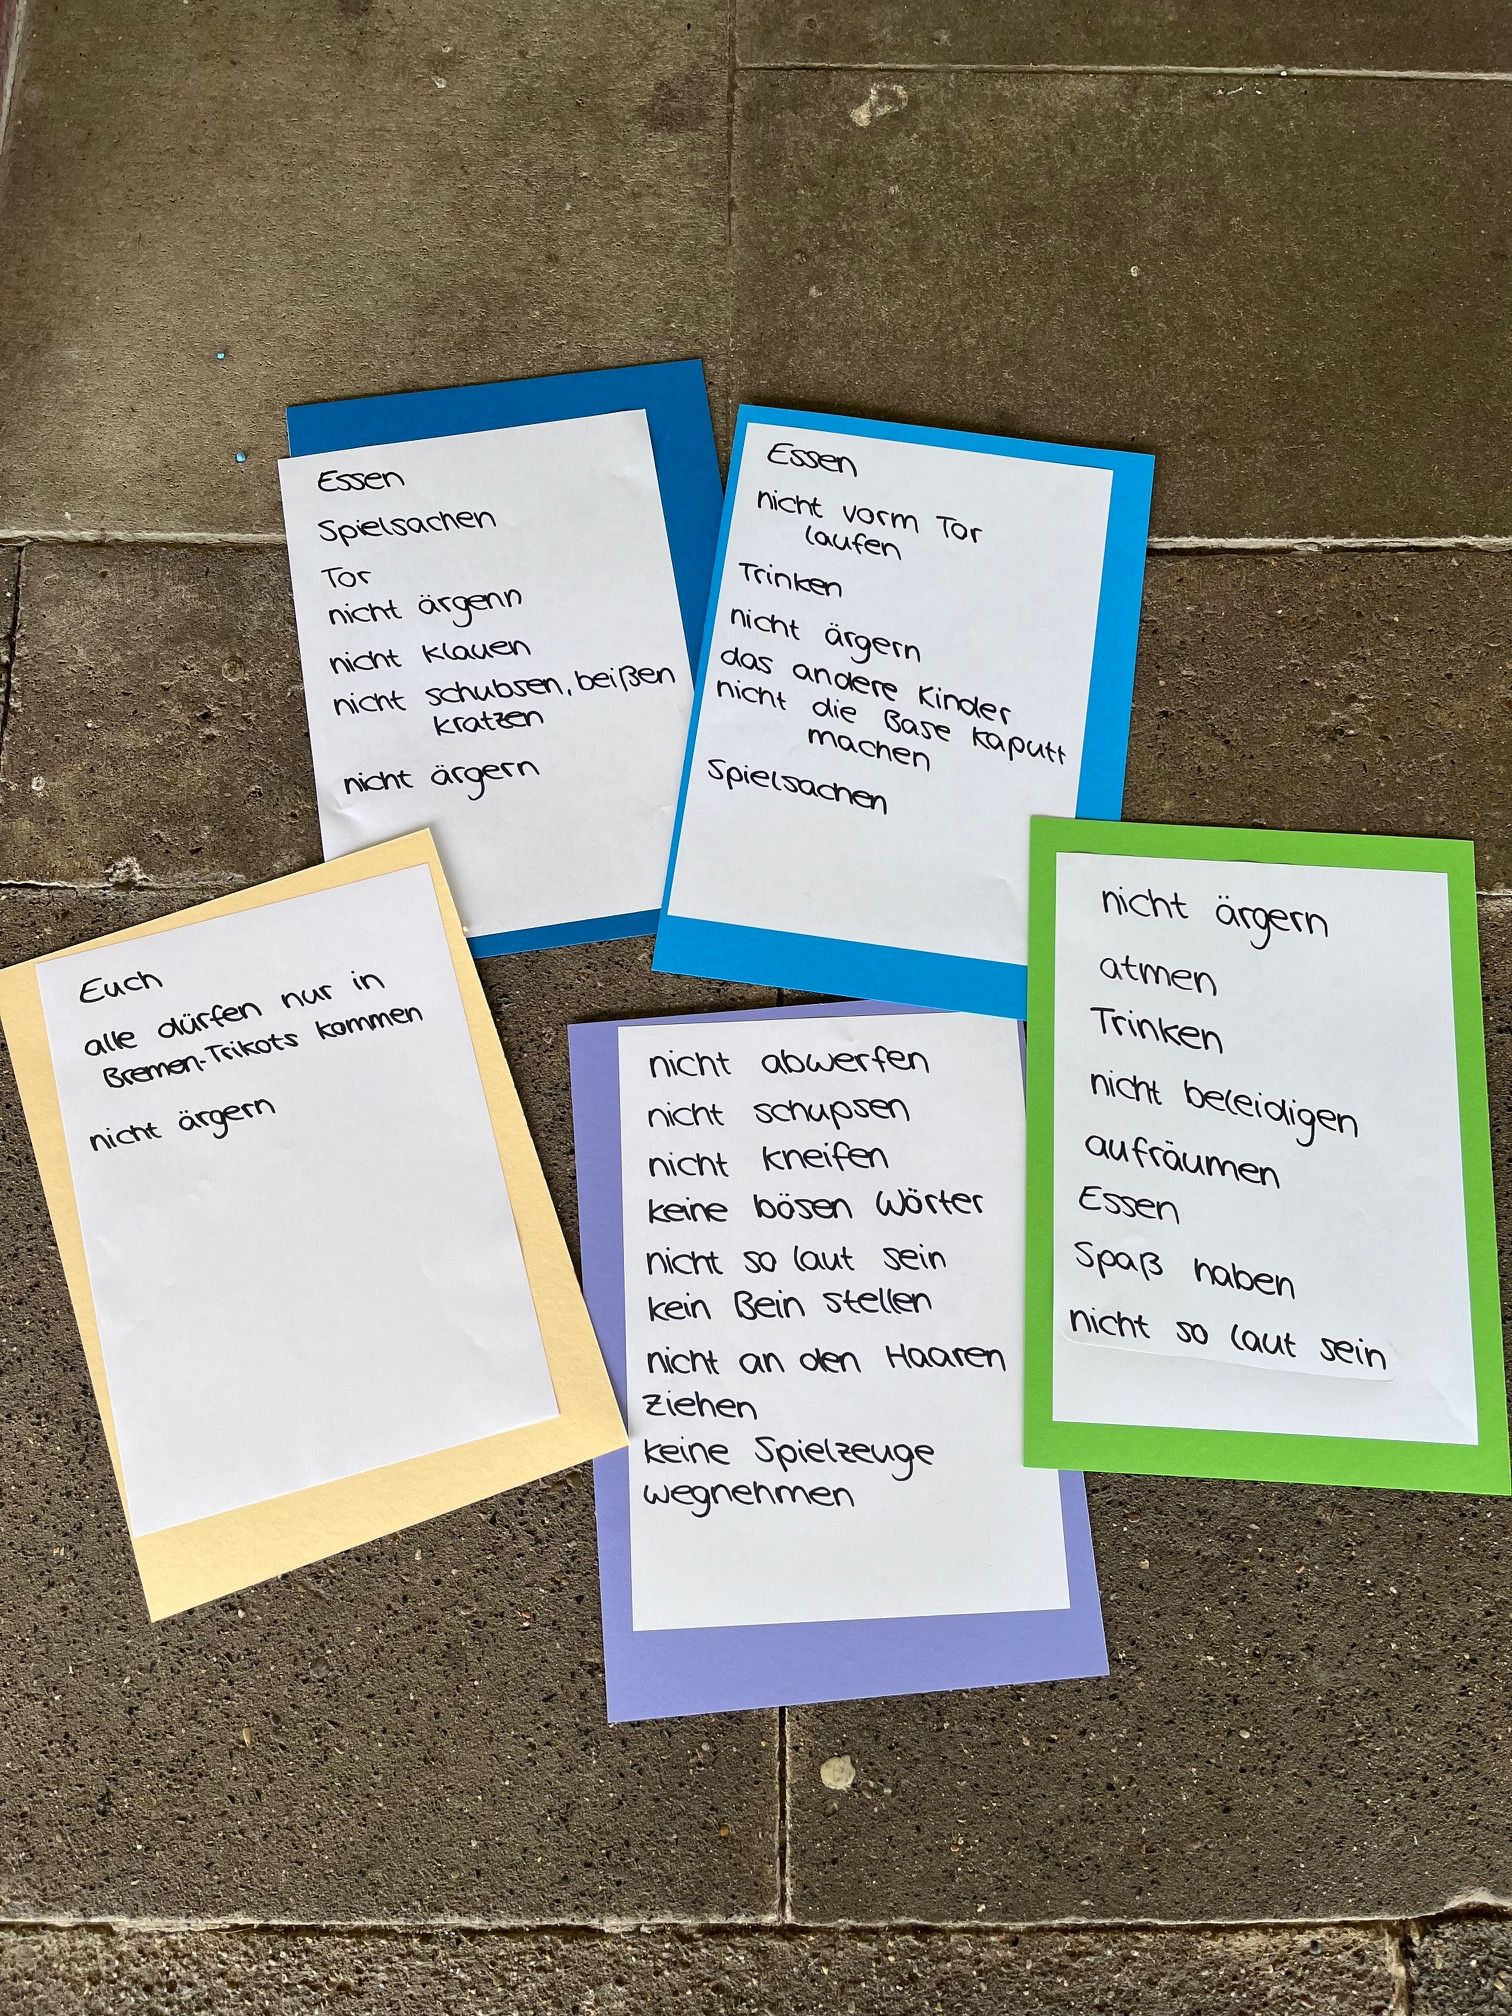 Essen
Spielsachen
Tor
nicht ärgenn
nicht klauen
nicht schubsen, beißen
kratzen
nicht ärgern
Essen
nicht vorm Tor
laufen
Trinken
nicht ärgern
das andere Kinder
nicht die Base kaputt
machen
Spielsachen
Euch
alle dürfen nur in
Bremen-Trikots kommen
nicht ärgern
nicht abwerfen
nicht schupsen
nicht kneifen
keine bösen Wörter
nicht so laut sein
kein Bein stellen
nicht an den Haaren
ziehen
keine Spielzeuge
wegnehmen
nicht ärgern
atmen
Trinken
nicht beleidigen
aufräumen
Essen
Spaß haben
nicht so laut sein